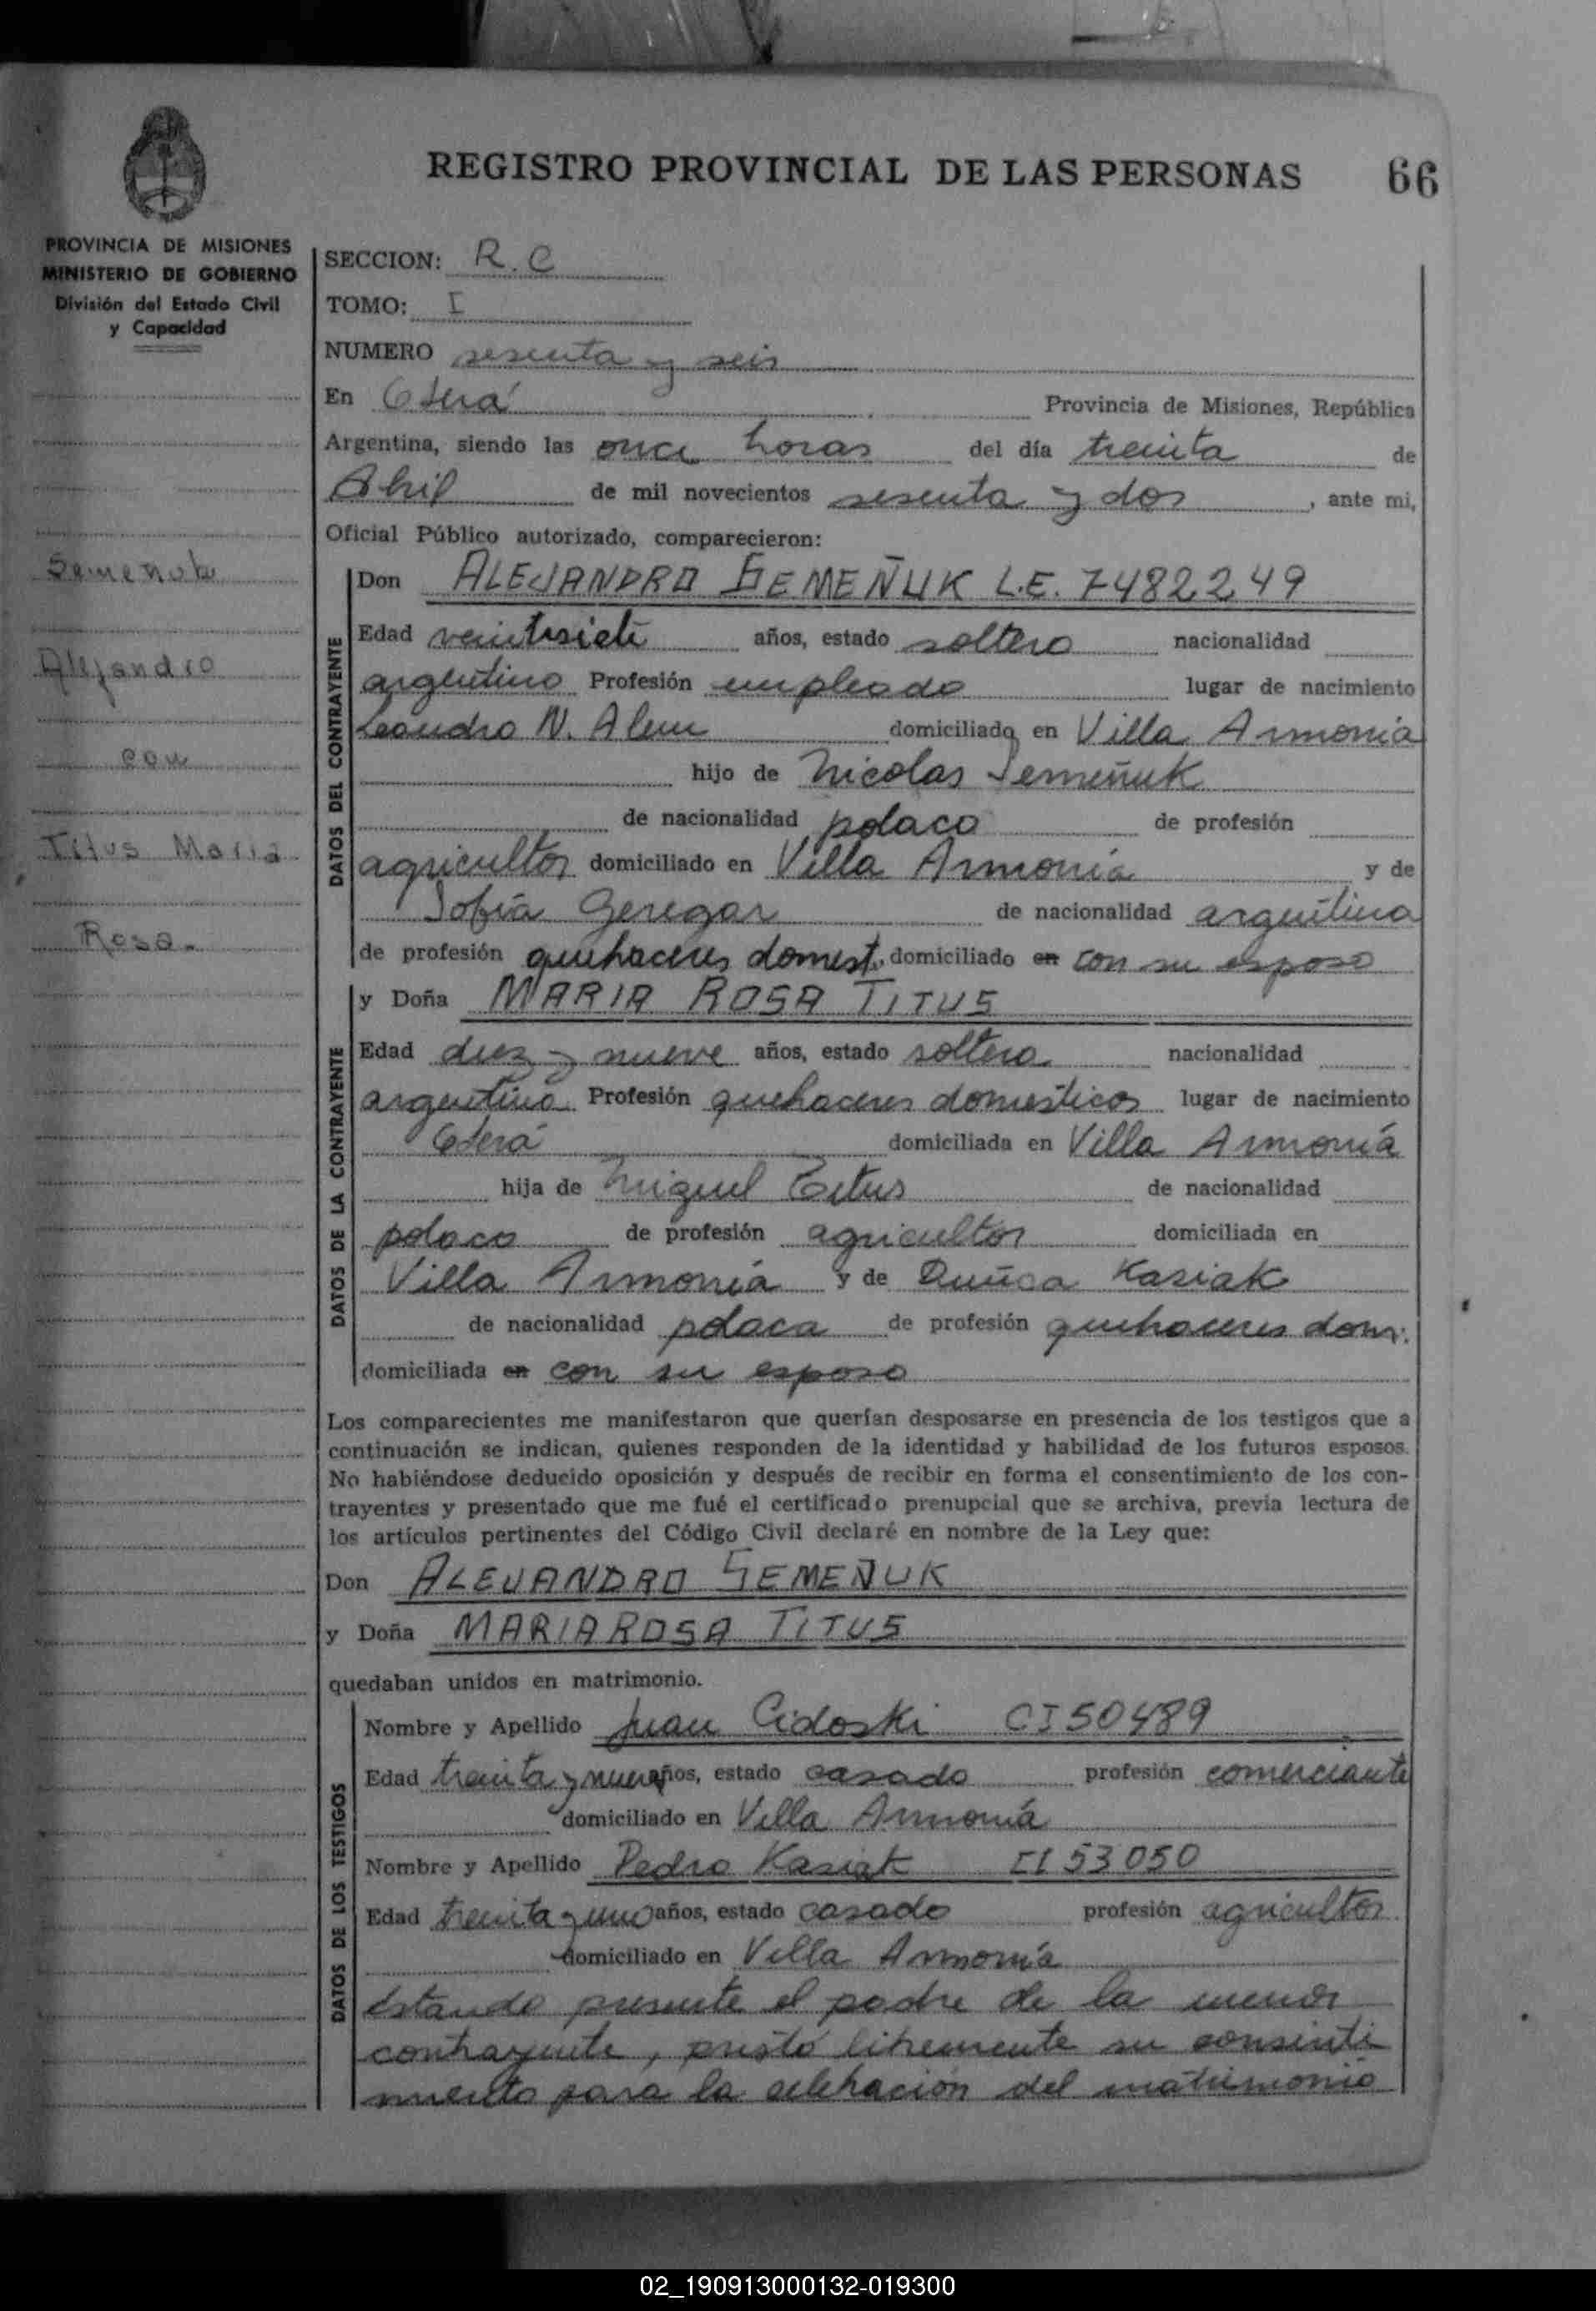 REGISTRO PROVINCIAL DE LAS PERSONAS 66
PROVINCIA DE MISIONES
MINISTERIO DE GOBIERNO
División del Estado Civil
y Capacidad
Semeñuk
Alejandro
con
Titus Maria
Rosa.
SECCION: R.C
TOMO: I
NUMERO sesenta y seis
En Oberá Provincia de Misiones, República
Argentina, siendo las once horas del día treinta de
Abril de mil novecientos sesenta y dos, ante mi,
Oficial Público autorizado, comparecieron:
DATOS DEL CONTRAYENTE
Don ALEJANDRO SEMEÑUK L.E. 7482249
Edad veintisiete años, estado soltero nacionalidad
argentino Profesión empleado lugar de nacimiento
Leandro N. Alem domiciliado en Villa Armonía
hijo de Nicolas Semeñuk
de nacionalidad polaco de profesión
agricultor domiciliado en Villa Armonía y de
Sofía Geregar de nacionalidad argentina
de profesión quehaceres domest. domiciliado en con su esposo
DATOS DE LA CONTRAYENTE
y Doña MARIA ROSA TITUS
Edad diez y nueve años, estado soltera nacionalidad
argentina Profesión quehaceres domesticos lugar de nacimiento
Oberá domiciliada en Villa Armonía
hija de Miguel Titus de nacionalidad
polaco de profesión agricultor domiciliada en
Villa Armonía y de Kasiak
de nacionalidad polaca de profesión quehaceres dom.
domiciliada en con su esposo
Los comparecientes me manifestaron que querían desposarse en presencia de los testigos que a
continuación se indican, quienes responden de la identidad y habilidad de los futuros esposos.
No habiéndose deducido oposición y después de recibir en forma el consentimiento de los con-
trayentes y presentado que me fué el certificado prenupcial que se archiva, previa lectura de
los artículos pertinentes del Código Civil declaré en nombre de la Ley que:
Don ALEJANDRO SEMEÑUK
y Doña MARIA ROSA TITUS
quedaban unidos en matrimonio.
DATOS DE LOS TESTIGOS
Nombre y Apellido Juan Cidoski CI 50489
Edad treinta y nueve años, estado casado profesión comerciante
domiciliado en Villa Armonía
Nombre y Apellido Pedro Kasiak CI 53050
Edad treinta y uno años, estado casado profesión agricultor
domiciliado en Villa Armonía
Estando presente el padre de la menor
contrayente, prestó libremente su consenti
miento para la celebración del matrimonio
02_190913000132-019300